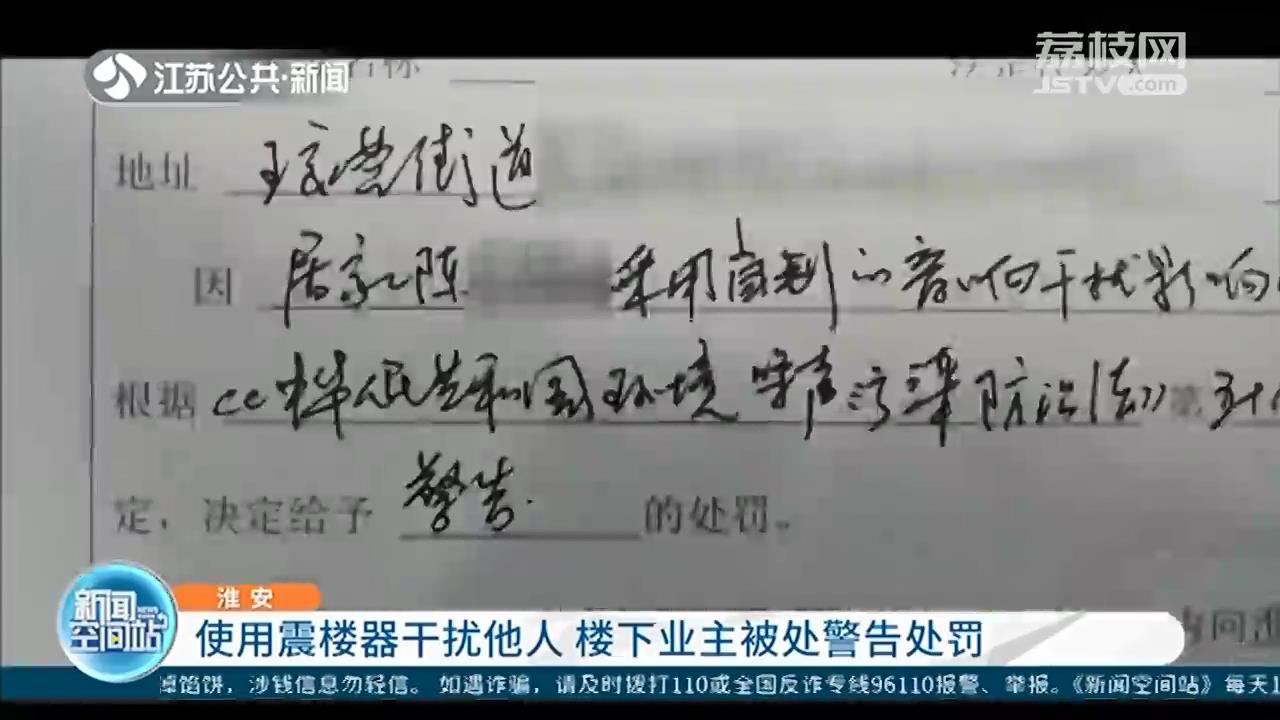 江苏公共·新闻
荔枝网
JSTV.com
地址 王营街道
因 居家陈 采用自制的音响干扰影响
根据《中华人民共和国环境噪声污染防治法》第五十
定，决定给予 警告 的处罚。
淮安
新闻空间站
NEWS
使用震楼器干扰他人 楼下业主被处警告处罚
掉馅饼，涉钱信息勿轻信。如遇诈骗，请及时拨打110或全国反诈专线96110报警、举报。《新闻空间站》每天1